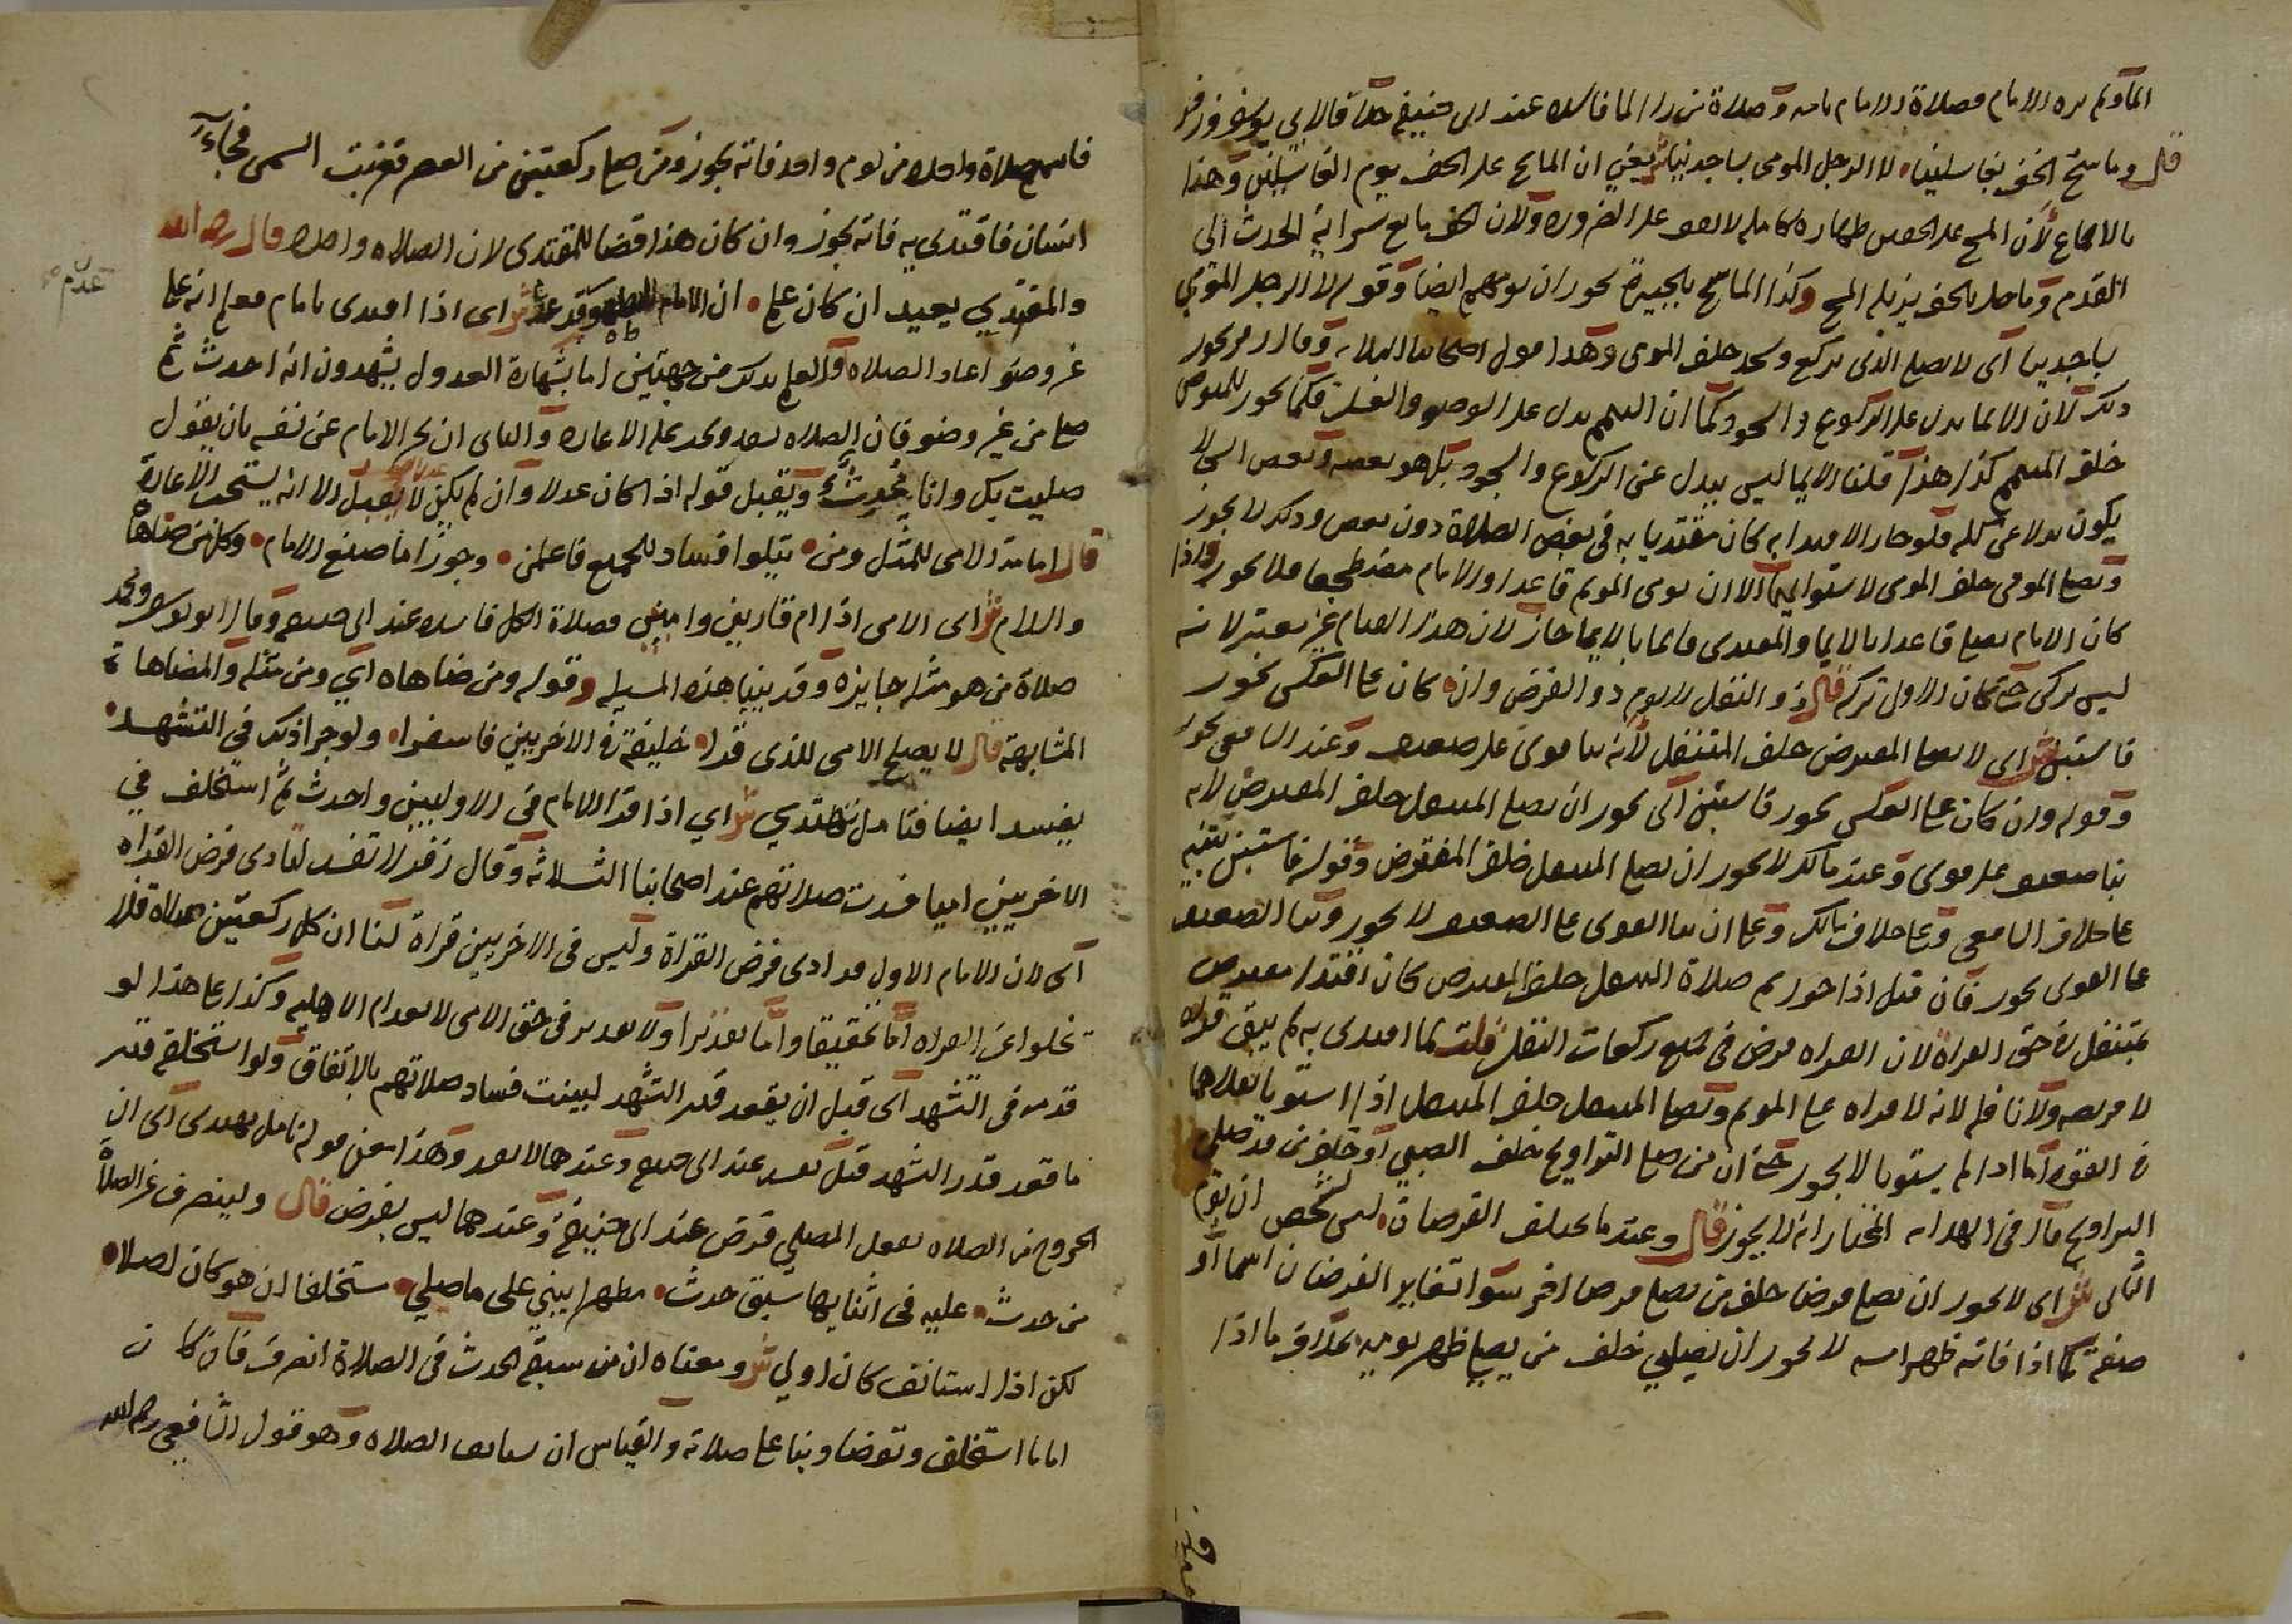 المأموم يره والامام فصلاة الامام تامة وصلاة من را الما فاسده عند ابي حنيفة خلافا لابي يوسف وزفر
قال وماسح الخف بغاسلينا لا الرجل المومي بساجدينا ش يعني ان الماسح على الخف يوم الغاسلين وهذا
بالاجماع لان المسح على الخفين طهارة كاملة لا تقف على الضرورة ولان الخف مانع سراية الحدث الى
القدم وما حل بالخف يزيله المسح وكذا الماسح بالجبيرة يجوز ان يومهم ايضا وقوله لا الرجل المومي
بساجدينا اي لا يصلي الذي يركع ويسجد خلف المومي وهذا قول اصحابنا الثلاثة وقال زفر يجوز
ذلك لان الايما بدل على الركوع والسجود كما ان التيمم بدل على الوضوء والغسل فكما يجوز للمتوضي
خلف المتيمم كذا هذا قلنا الايما ليس ببدل عن الركوع والسجود بل هو بعضه وبعض الشي لا
يكون بدلا عن كله فلو جاز الاقتدا به كان مقتديا به في بعض الصلاة دون بعض وذلك لا يجوز
ويصلي المومي خلف المومي لاستوايهما الا ان يومي الموتم قاعدا والامام مضطجعا فلا يجوز واذا
كان الامام يصلي قاعدا بالايما والمقتدي قايما بالايما جاز لان هذا القيام غير معتبر لانه
ليس بركن حتى كان الاولى تركه قال ذو النفل لا يوم ذو الفرض وان كان على العكس يجوز
فاستبن ش اي لا يصلي المفترض خلف المتنفل لانه بنا قوي على ضعيف وعند الشافعي يجوز
وقوله وان كان على العكس يجوز فاستبن اي يجوز ان يصلي المتنفل خلف المفترض لانه
بنا ضعيف على قوي وعند مالك لا يجوز ان يصلي المتنفل خلف المفترض وقوله فاستبن تنبيه
على خلاف الشافعي وعلى خلاف مالك وعلى ان بنا القوي على الضعيف لا يجوز وبنا الضعيف
على القوي يجوز فان قيل اذا جوزتم صلاة المتنفل خلف المفترض كان اقتدا مفترض
بمتنفل في حق القراة لان القراه فرض في جميع ركعات النفل قلت لما اقتدى به لم يبق قراه
لا فريضه ولا نافله لانه لا قراه على الموتم ويصلي المتنفل خلف المتنفل اذا استويا بعد هما
في القوه اما اذا لم يستويا لا يجوز حتى ان من صلى التراويح خلف الصبي او خلف من قد صلى
التراويح قال في الهداية المختار انه لا يجوز قال وعندما يختلف الفرضان ليس لشخص ان يوم
الثاني ش اي لا يجوز ان يصلي فرضا خلف من يصلي فرضا اخر سوا تغاير الفرضان اسما او
صفة كما اذا فاته ظهر امسه لا يجوز ان يصلي خلف من يصلي ظهر يوميه بخلاف ما اذا
فاتهم صلاة واحده من يوم واحد فانه يجوز ومن صلى ركعتين من العصر فغربت الشمس فجاء
انسان فاقتدى به فانه يجوز وان كان هذا قضا للمقتدي لان الصلاه واحده قال رحمه الله
والمقتدي يعيد ان كان علم ان الامام للطهر قد عدم ش اي اذا اقتدى بامام فعلم انه على
غير وضوء اعاد الصلاه والعلم بذلك من جهتين اما بشهادة العدول يشهدون انه احدث ثم
صلى من غير وضوء فان الصلاه تفسد ويجب عليه الاعاده والثاني ان يخبر الامام عن نفسه بان يقول
صليت بكم وانا محدث ويقبل قوله اذا كان عدلا وان لم يكن عدلا لا يقبل الا انه يستحب الاعادة
قال امامة الامي للمثل ومن يتلوا فساد للجميع فاعلمن وجوزا ما صنع الامام وكل من ضاهاه
والسلام ش اي الامي اذا ام قاريين واميين فصلاة الكل فاسده عند ابي حنيفة وقال ابو يوسف ومحمد
صلاة من هو مثله جايزه وقد بينا هذه المسيلة وقوله ومن ضاهاه اي ومن مثله والمضاهاة
المشابهة قال لا يصلح الامي للذي قرا خليفة في الاخريين فاسفرا ولو جرا ذلك في التشهد
يفسد ايضا فتامل تهتدي ش اي اذا قرا الامام في الاوليين واحدث ثم استخلف في
الاخريين اميا فسدت صلاتهم عند اصحابنا الثلاثه وقال زفر لا تفسد لتادي فرض القراه
اي لان الامام الاول قد ادى فرض القراة وليس في الاخريين قراة لنا ان كل ركعتين صلاة فلا
تخلوا عن القراه اما تحقيقا واما تقديرا ولا تقدير في حق الامي لانعدام الاهليه وكذا على هذا لو
قدمه في التشهد اي قبل ان يقعد قدر التشهد لبينت فساد صلاتهم بالاتفاق ولو استخلفه قدر
ما قعد قدر التشهد قيل تفسد عند ابي حنيفة وعندهما لا تفسد وهذا معنى قوله تامل تهتدي اي ان
الخروج من الصلاه بفعل المصلي فرض عند ابي حنيفة وعندهما ليس بفرض قال ولينصرف عن الصلاة
من حدث عليه في اثنايها سبق حدث مطهرا يبني على ما صلي مستخلفا ان هو كان لصلاه
لكن اذا استانف كان اولي ش ومعناه ان من سبقه الحدث في الصلاة انصرف فان كان
اماما استخلف وتوضا وبنا على صلاته والقياس ان يستانف الصلاه وهو قول الشافعي رحمه الله
عدم صح